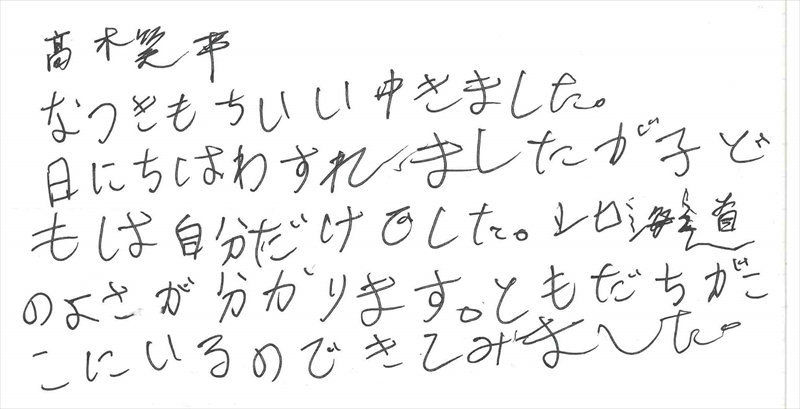 高木笑
なつきもちいい中きました。
日にちはわすれましたが子ど
もは自分だけでした。北海道
のよさが分かります。ともだちがこ
こにいるのできてみました。